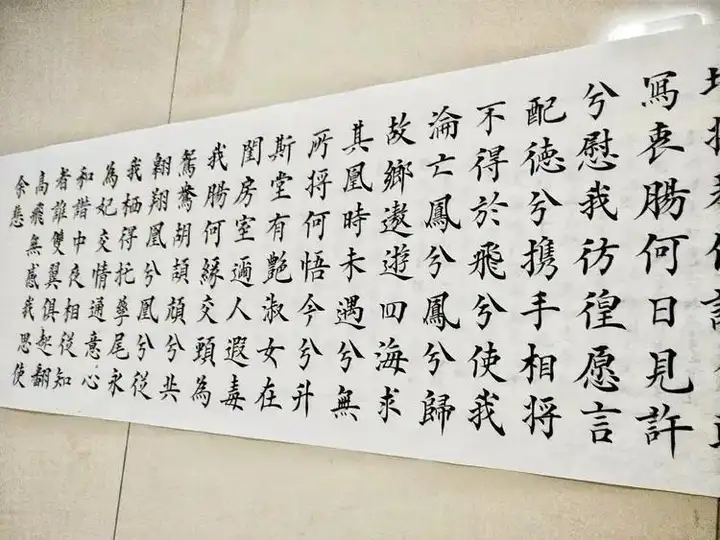 寫衷腸何日見許
兮慰我彷徨愿言
配德兮携手相將
不得於飛兮使我
淪亡鳳兮鳳兮歸
故鄉遨遊四海求
其凰時未遇兮無
所将何悟今兮升
斯堂有艷淑女在
閨房室邇人遐毒
我腸何緣交頸為
鴛鴦胡頡頏兮共
翱翔凰兮凰兮從
我栖得托孳尾永
為妃交情通意心
和諧中夜相從知
者誰雙翼俱起翻
高飛無感我思使
余悲